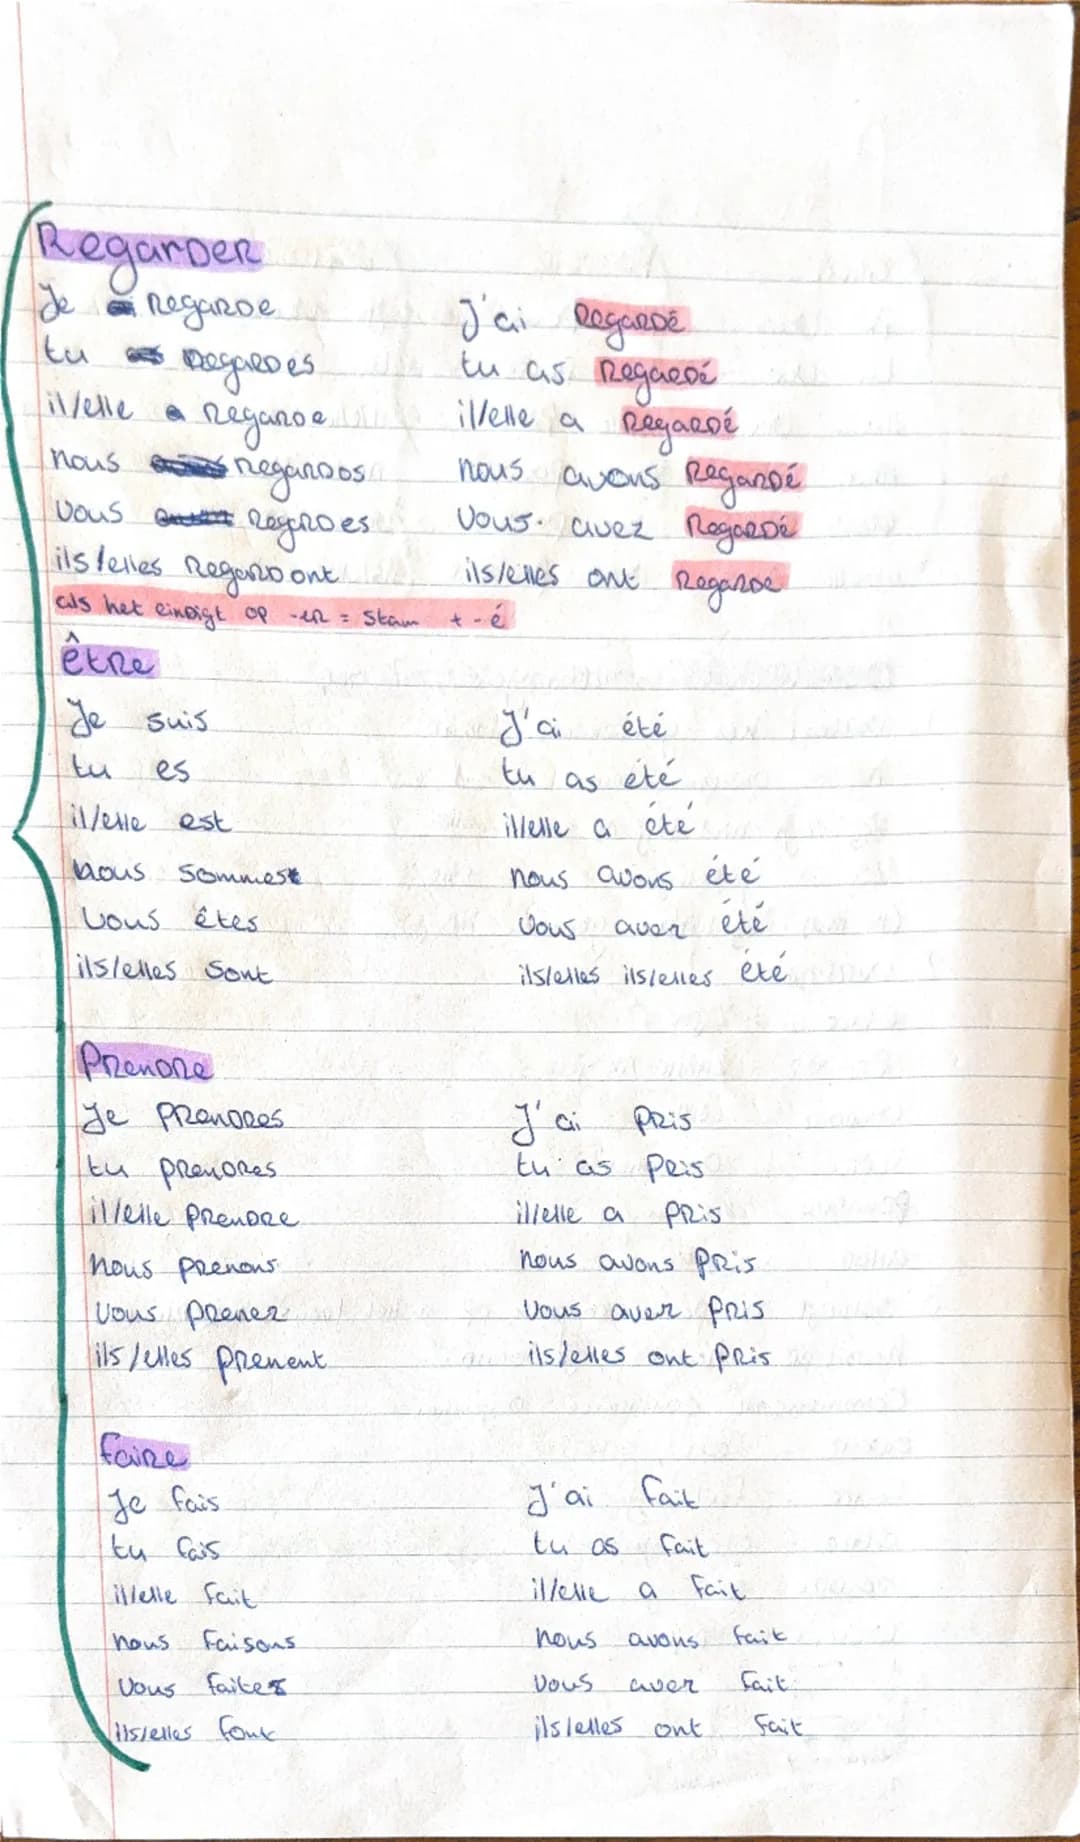 Regarder
Je regarde J'ai Regardé
tu regardes tu as Regardé
il/elle regarde il/elle a Regardé
nous regardos nous avons Regardé
vous regardes vous avez Regardé
ils/elles Regardont ils/elles ont Regardé
als het eindigt op -er = Stam + -é
être
Je suis J'ai été
tu es tu as été
il/elle est il/elle a été
nous sommes nous avons été
vous êtes vous avez été
ils/elles sont ils/elles ils/elles été
Prendre
Je prendres J'ai pris
tu prendres tu as pris
il/elle prendre il/elle a pris
nous prenons nous avons pris
vous prenez vous avez pris
ils/elles prenent ils/elles ont pris
faire
Je fais J'ai fait
tu fais tu as fait
il/elle fait il/elle a fait
nous faisons nous avons fait
vous faites vous avez fait
ils/elles font ils/elles ont fait